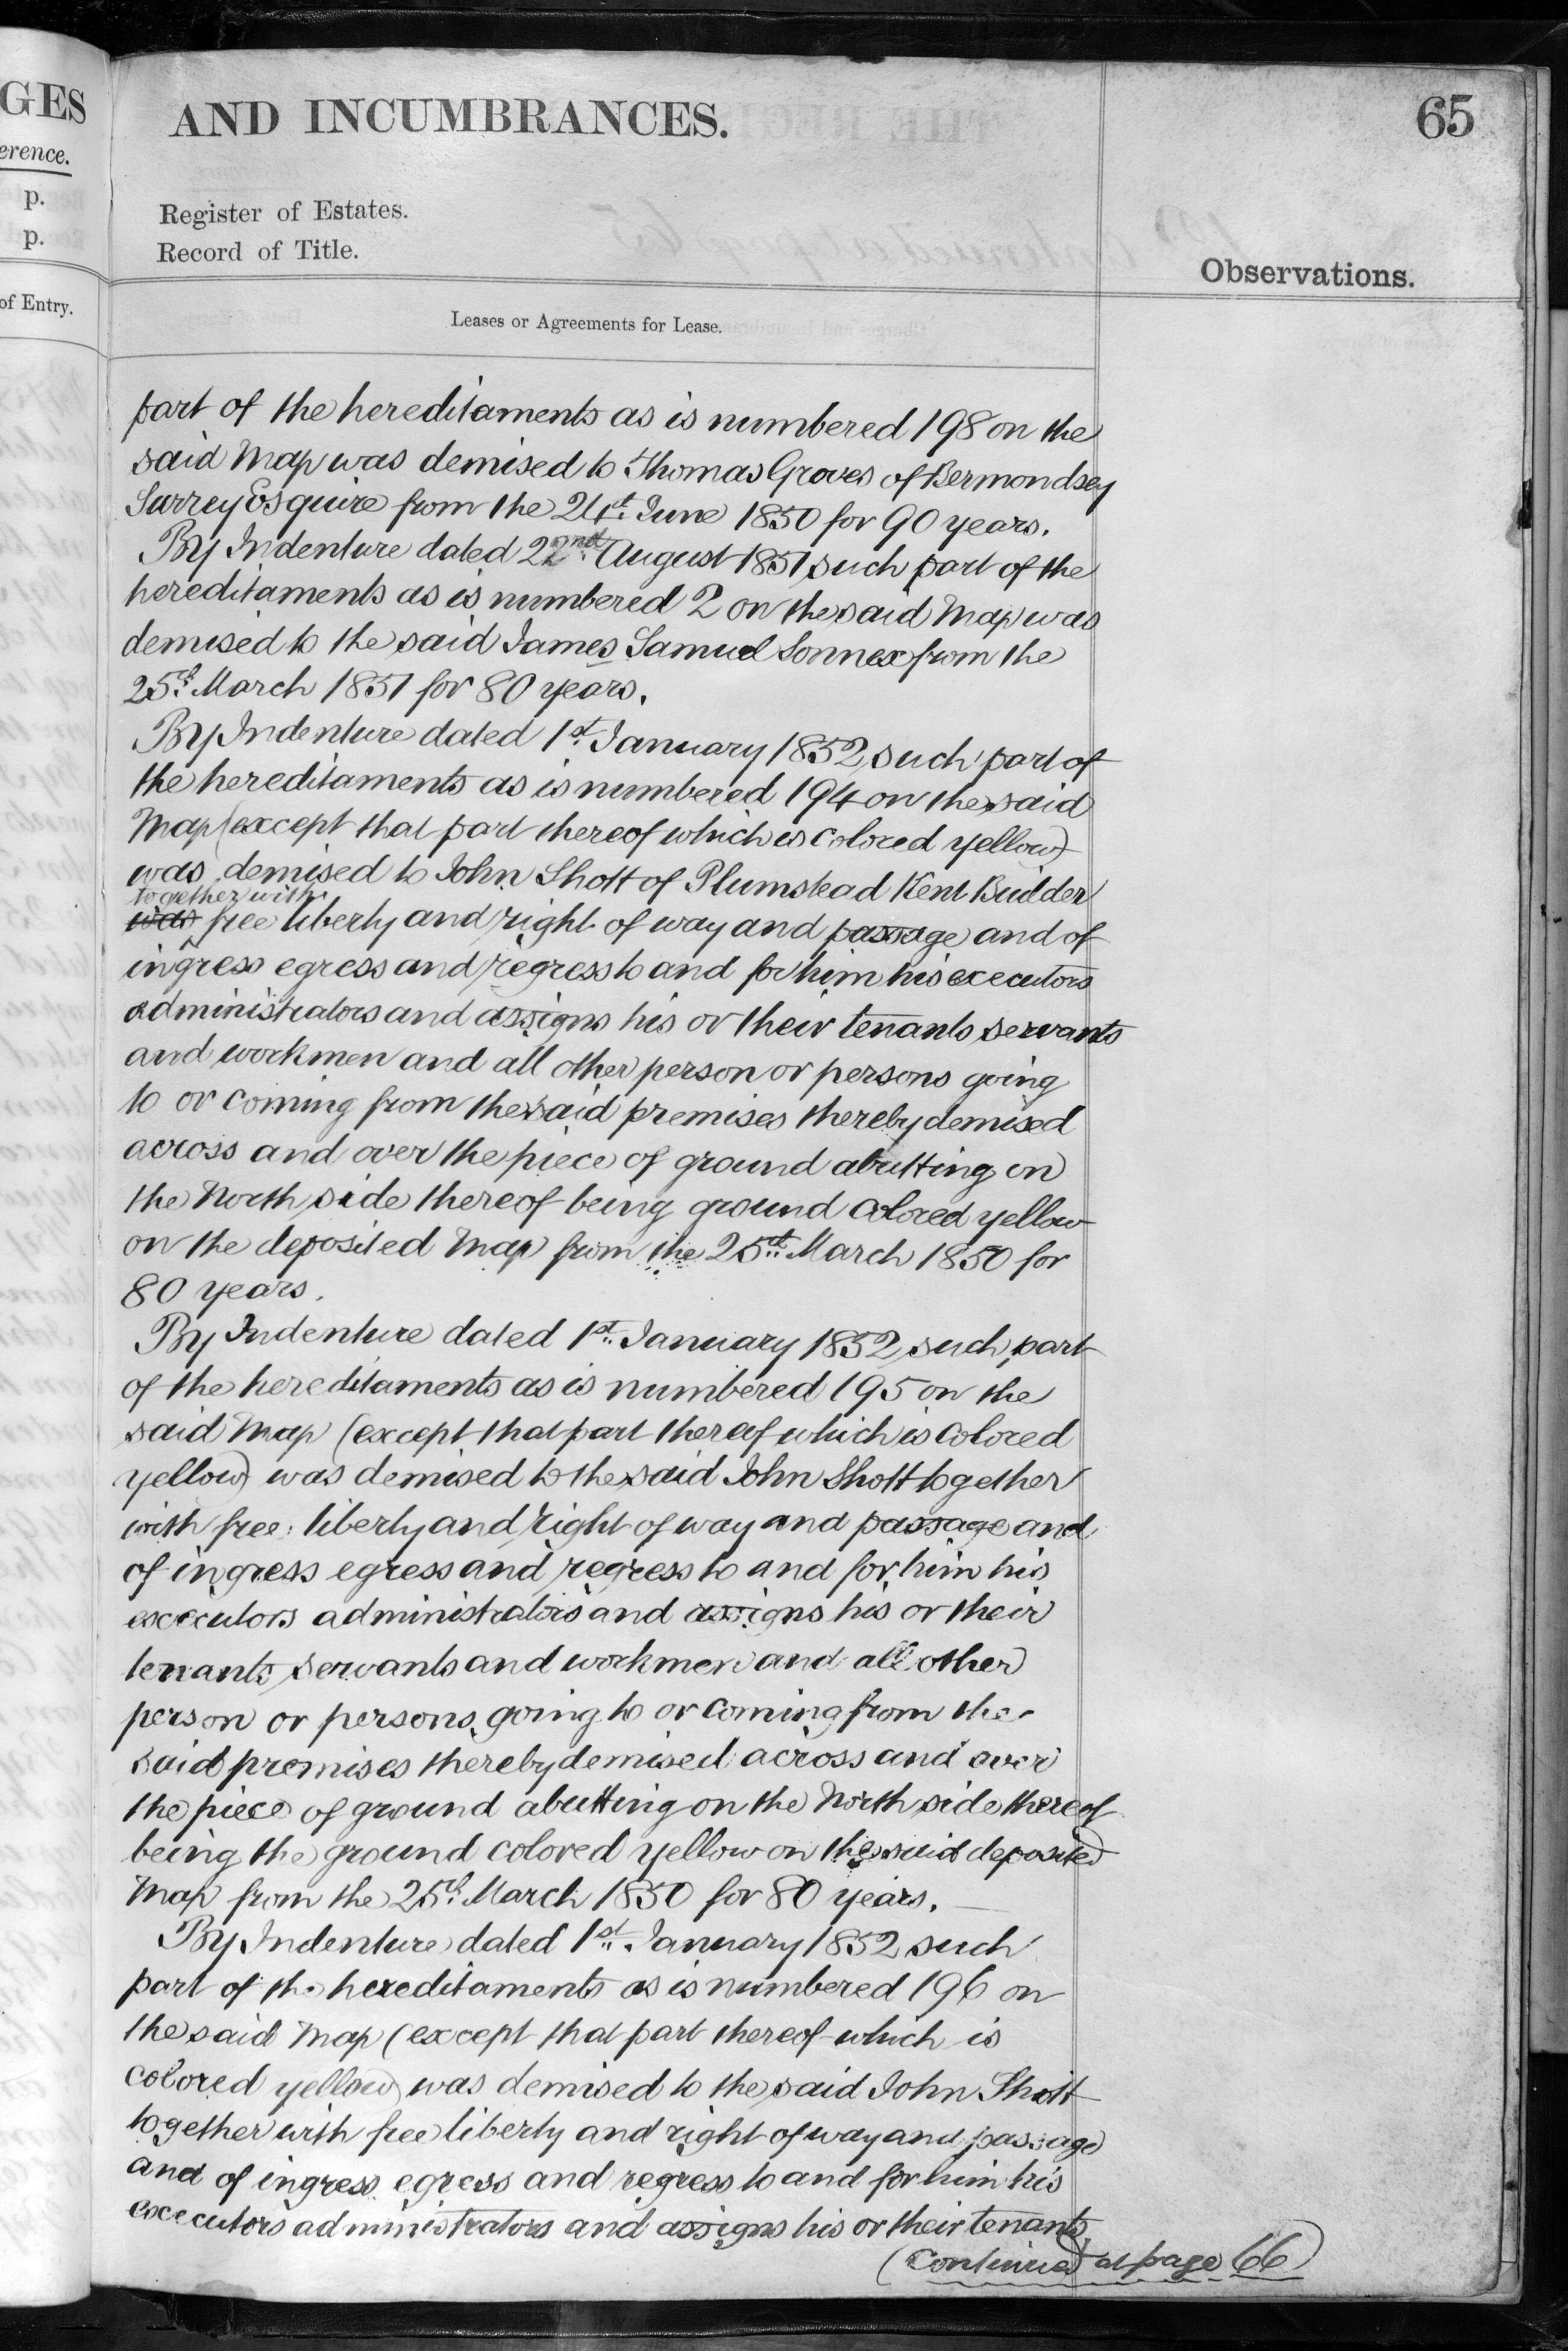 GES
erence.
p.
p.
of Entry.
AND INCUMBRANCES.
65
Register of Estates.
Record of Title.
Observations.
Leases or Agreements for Lease.
part of the hereditaments as is numbered 198 on the
said Map was demised to Thomas Groves of Bermondsey
Surrey Esquire from the 24th June 1850 for 90 years.
By Indenture dated 22nd August 1851 such part of the
hereditaments as is numbered 2 on the said Map was
demised to the said James Samuel Sonnex from the
25th March 1851 for 80 years.
By Indenture dated 1st January 1852 such part of
the hereditaments as is numbered 194 on the said
Map (except that part thereof which is colored yellow)
was demised to John Shott of Plumstead Kent Builder
together with
was free liberty and right of way and passage and of
ingress egress and regress to and for him his executors
administrators and assigns his or their tenants servants
and workmen and all other person or persons going
to or coming from the said premises thereby demised
across and over the piece of ground abutting on
the North side thereof being ground colored yellow
on the deposited Map from the 25th March 1850 for
80 years.
By Indenture dated 1st January 1852 such part
of the hereditaments as is numbered 195 on the
said Map (except that part thereof which is colored
yellow) was demised to the said John Shott together
with free liberty and right of way and passage and
of ingress egress and regress to and for him his
executors administrators and assigns his or their
tenants servants and workmen and all other
person or persons going to or coming from the
said premises thereby demised across and over
the piece of ground abutting on the North side thereof
being the ground colored yellow on the said deposited
Map from the 25th March 1850 for 80 years.
By Indenture dated 1st January 1852 such
part of the hereditaments as is numbered 196 on
the said Map (except that part thereof which is
colored yellow) was demised to the said John Shott
together with free liberty and right of way and passage
and of ingress egress and regress to and for him his
executors administrators and assigns his or their tenants
(Continued at page 66)